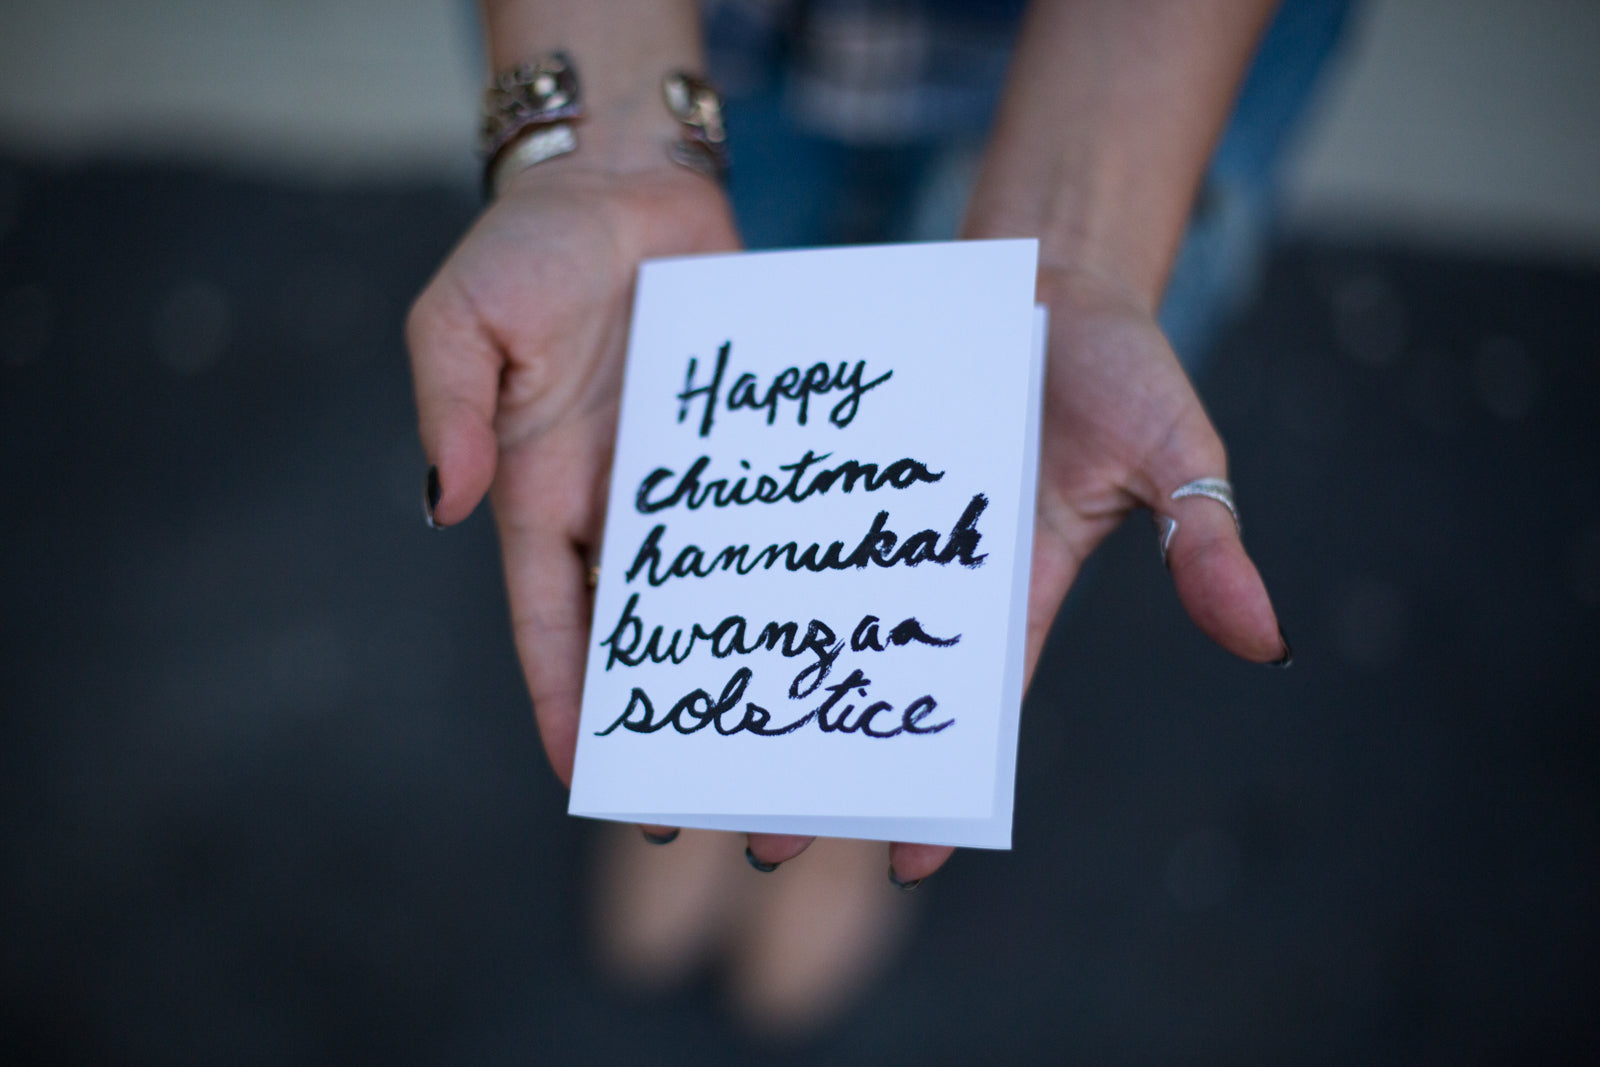 Happy
christma
hannukah
kwanzaa
solstice